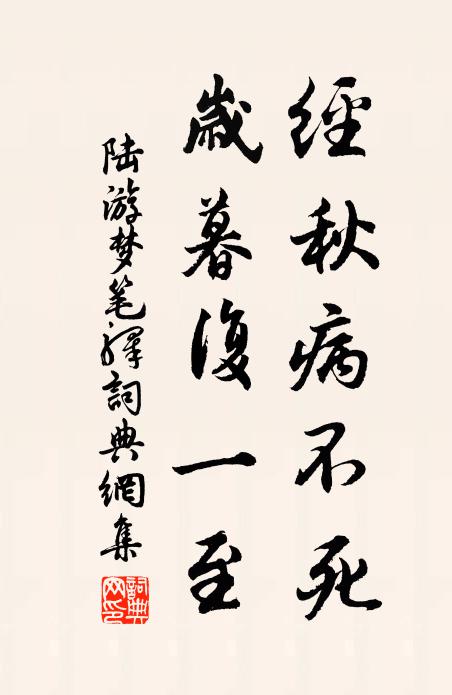 經秋病不死
歲暮復一至
陆游梦笔驿詞典網集
詞典
网印